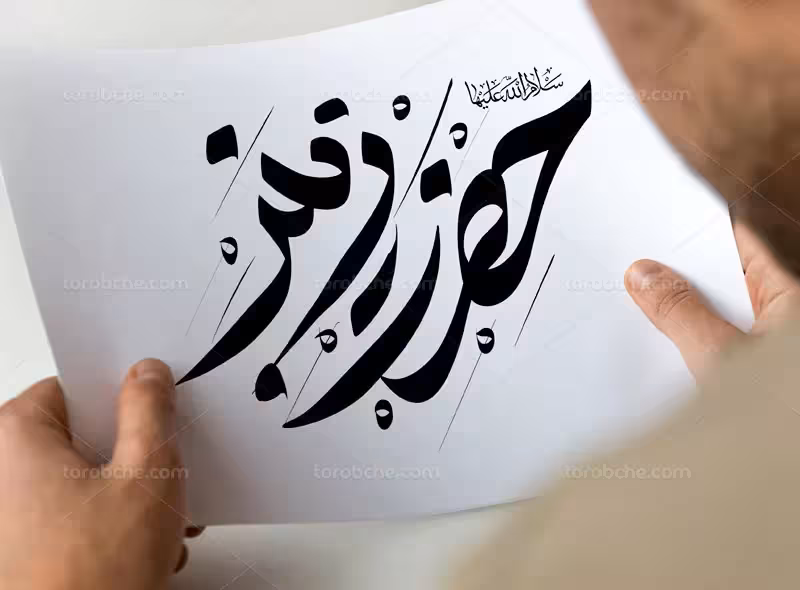 سلام الله علیها
حضرت
torobche.com torobche.com torobche.com
torobche.com torobche.com torobche.com
torobche.com torobche.com torobche.com